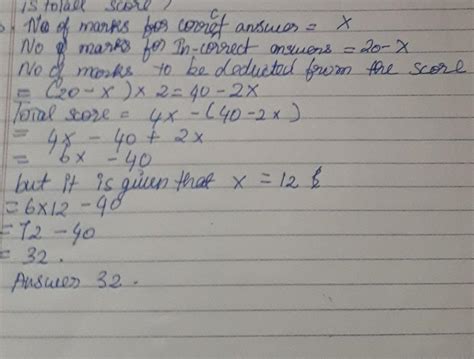 is totall score?
No of marks for correct answer = x
No of marks for In-correct answers = 20-x
No of marks to be deducted from the score
= (20-x)x2=40-2x
Total score = 4x-(40-2x)
= 4x - 40 + 2x
= 6x - 40
but it is given that x = 12
= 6x12 - 40
= 72 - 40
= 32.
Answer 32.